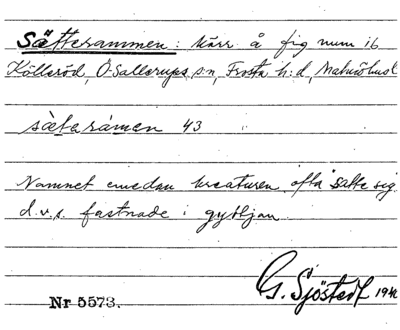 Sätterammen: kärr å fig num 16
Källeröd, Ö. Sallerups s:n, Frosta h:d, Malmöhusl
sätaramen 43
Namnet emedan kreaturen ofta satte sig
d.v.s. fastnade i gyttjan
G. Sjöstedt
Nr 5573.